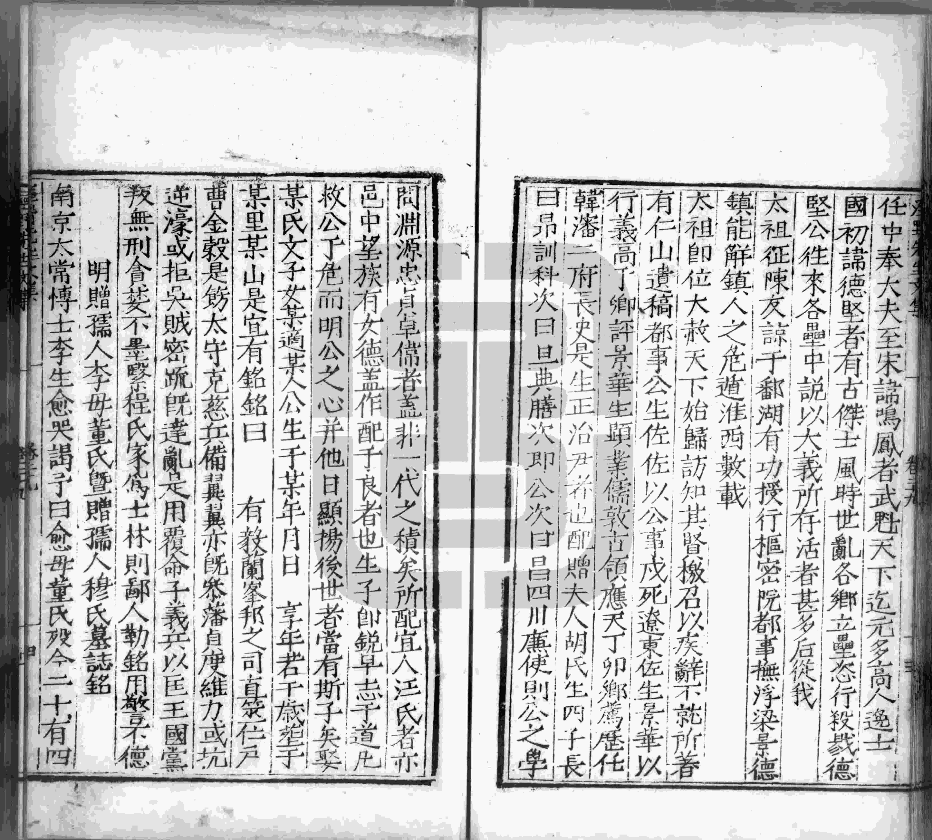 任中奉大夫至宋諱鳴鳳者武魁天下迄元多高人逸士
國初諱德堅者有古傑士風時世亂各鄉立壘恣行殺戮德
堅公徃來各壘中説以大義所存活者甚多后從我
太祖征陳友諒于鄱湖有功授行樞密院都事撫浮梁景德
鎮能解鎮人之危遁淮西數載
太祖即位大赦天下始歸訪知其賢檄召以疾辭不就所著
有仁山遺稿都事公生佐佐以公事戍死遼東佐生景華以
行義高了鄉評景華生顯業儒敦古領應天丁卯鄉薦歷仕
韓瀋二府長史是生正治尹者也配贈夫人胡氏生四子長
曰昂訓科次曰旦典膳次即公次曰昌四川廉使則公之學
問淵源忠貞卓儒者盖非一代之積矣所配宜人江氏者亦
邑中望族有女德盖作配于良者也生子即銳早志于道凡
救公丁危而明公之心并他日顯揚後世者當有斯子矣娶
某氏文子女某適某人公生于某年月日 享年若干歲塟于
某里某山是宜有銘銘曰 有敦蘭峯邦之司直筮仕户
曹金穀是飭太守克慈兵備翼翼亦既叅藩貞度維力或坑
逆濠或拒吳賊密疏既達亂是用覆命子義兵以匡王國黨
叛無刑貪婪不墨繄程氏家爲士林則鄙人勒銘用警不德
明贈孺人李母董氏暨贈孺人穆氏墓誌銘
南京太常博士李生愈哭謁予曰愈母董氏殁今二十有四